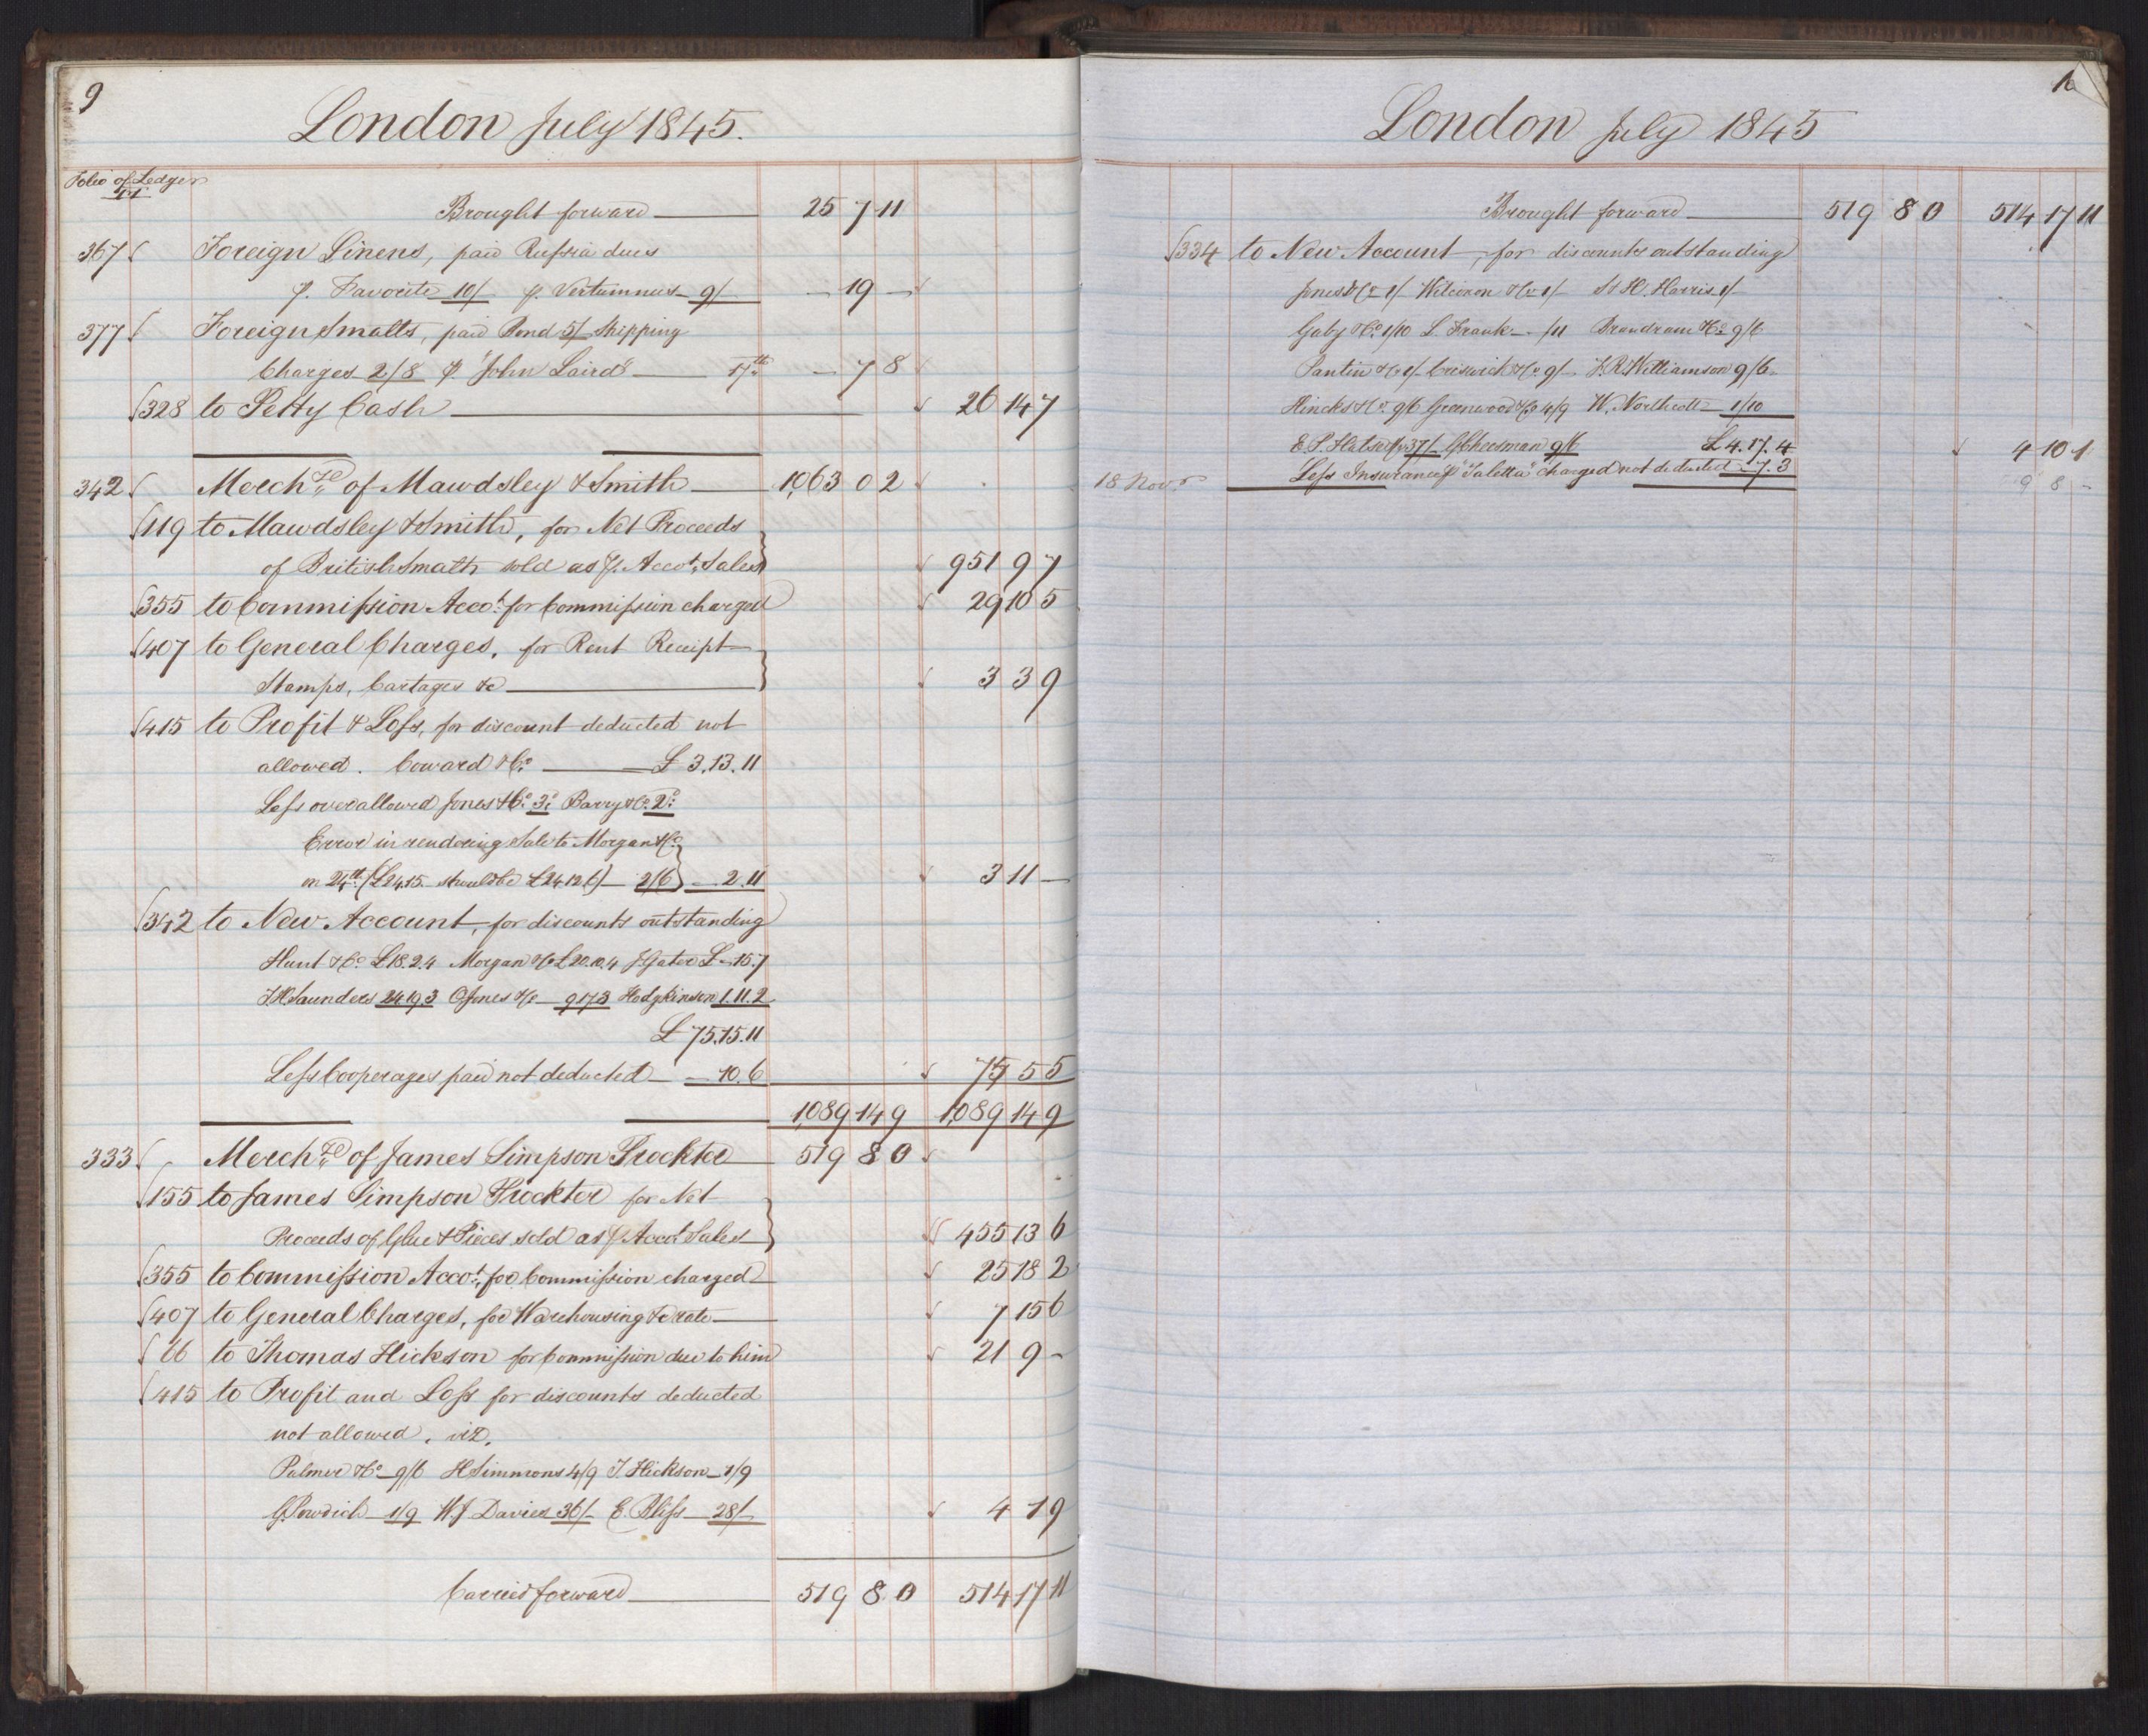 9
London July 1845.
Folio of Ledger
Brought forward 25 7 11
367 Foreign Linens, paid Russia dues
p. Favorite 10/ p. Vertumnus 9/ - 19 -
377 Foreign Smalts, paid Bond 5/ Shipping
Charges 2/8 p. "John Laird" 17th - 7 8
328 to Petty Cash 26 14 7
342 Merchdze of Mawdsley & Smith 1,063 0 2
119 to Mawdsley & Smith, for Net Proceeds
of British Smalts sold as p. Accot. Sales 951 9 7
355 to Commission Accot. for Commission charged 29 10 5
407 to General Charges, for Rent Receipt
Stamps, Cartages &c 3 3 9
415 to Profit & Loss, for discount deducted not
allowed. Coward & Co. £ 3.13.11
Less overallowed Jones & Co. 3d Barry & Co. 2d
Error in rendering Sale to Morgan & Co.
on 24th (£24.15 should be £24.12.6) 2/6 - 2.11 3 11 -
342 to New Account, for discounts outstanding
Hunt & Co. £18.2.4 Morgan & Co £20.10.4 J. Gater £-.15.7
J H Saunders 24.19.3 O Jones & Co 9 17 3 Hodgkinson 1.11.2
£ 75.15.11
Less Cooperages paid not deducted - 10.6 75 5 5
1,089 14 9 1,089 14 9
333 Merchdze of James Simpson Prockter 519 8 0
155 to James Simpson Prockter for Net
Proceeds of Glue & Pieces sold as p. Accot. Sales 455 13 6
355 to Commission Accot., for Commission charged 25 18 2
407 to General Charges, for Warehousing &c rate 7 15 6
66 to Thomas Hickson for Commission due to him 21 9 -
415 to Profit and Loss for discounts deducted
not allowed. viz.
Palmer & Co 9/6 H Simmons 4/9 T. Hickson 1/9
G. Powdich 1/9 W. J Davies 36/- E. Bliss 28/- 4 1 9
Carried forward 519 8 0 514 17 11
10
London July 1845
Brought forward 519 8 0 514 17 11
334 to New Account, for discounts outstanding
Jones & Co 1/ Witcomn & Co 1/ St H. Harris 1/
Gaby & Co. 1/10 L. Frank -/11 Brandram & Co 9/6
Santin & Co 1/ Criswick & Co. 9/- J. R. Williamson 9/6
Hincks & Co. 9/6 Greenwood & Co 4/9 W. Northcott 1/10
E. S. 37/- G Cheesman 9/6 £4.17.4 4 10 1
18 Novr. Less Insurance p "Valetta" charged not deducted - 7.3 9 8 -